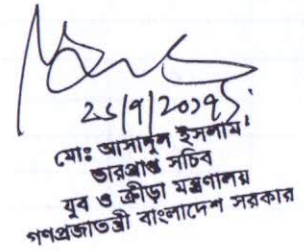 মোঃ আসাদুল ইসলাম
ভারপ্রাপ্ত সচিব
যুব ও ক্রীড়া মন্ত্রণালয়
গণপ্রজাতন্ত্রী বাংলাদেশ সরকার